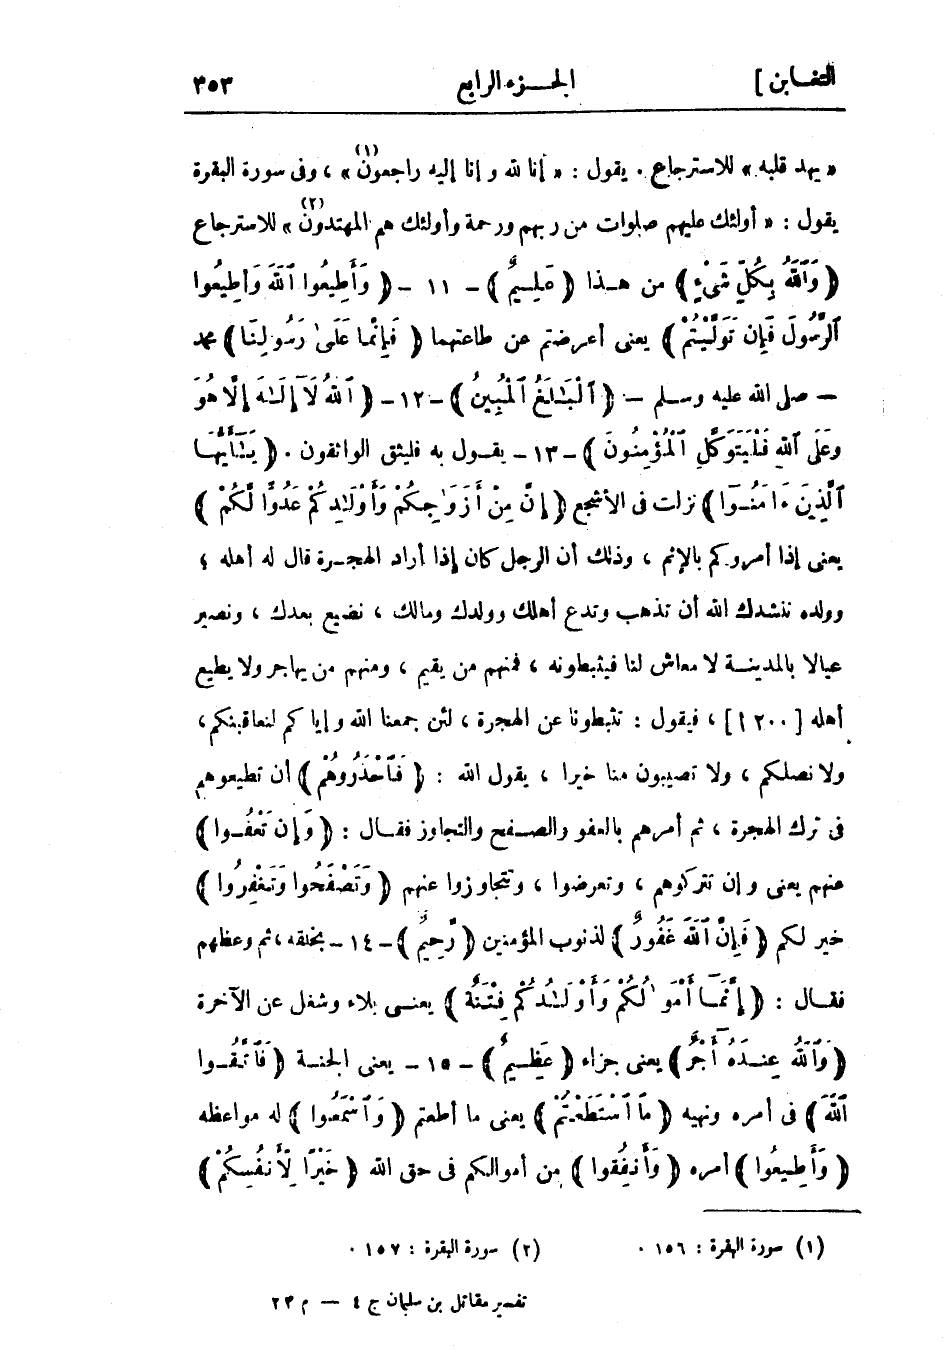 التغابن ] الجزء الرابع ٣٥٣
« يهد قلبه » للاسترجاع . يقول : « إنا لله و إنا إليه راجعون (١) » ، وفى سورة البقرة
يقول : « أولئك عليهم صلوات من ربهم ورحمة وأولئك هم المهتدون (٢) » للاسترجاع
( وَٱللَّهُ بِكُلِّ شَىْءٍ ) من هـذا ( عَلِيمٌ ) - ١١ - ( وَأَطِيعُوا ٱللَّهَ وَأَطِيعُوا
ٱلرَّسُولَ فَإِن تَوَلَّيْتُمْ ) يعنى أعرضتم عن طاعتهما ( فَإِنَّمَا عَلَىٰ رَسُولِنَا ) محمد
— صلى الله عليه وسلم — ( ٱلْبَلَٰغُ ٱلْمُبِينُ ) - ١٢ - ( ٱللَّهُ لَآ إِلَٰهَ إِلَّا هُوَ
وَعَلَى ٱللَّهِ فَلْيَتَوَكَّلِ ٱلْمُؤْمِنُونَ ) - ١٣ - يقول به فليثق الواثقون . ( يَٰٓأَيُّهَا
ٱلَّذِينَ ءَامَنُوٓا ) نزلت فى الأشجع ( إِنَّ مِنْ أَزْوَٰجِكُمْ وَأَوْلَٰدِكُمْ عَدُوًّا لَّكُمْ )
يعنى إذا أمروكم بالإثم ، وذلك أن الرجل كان إذا أراد الهجرة قال له أهله ؛
وولده ننشدك الله أن تذهب وتدع أهلك وولدك ومالك ، نضيع بعدك ، ونصير
عيالا بالمدينـة لا معاش لنا فيثبطونه ، فمنهم من يقيم ، ومنهم من يهاجر ولا يطيع
أهله [ ٢٠٠ ا ] ، فيقول : تثبطونا عن الهجرة ، لئن جمعنا الله و إياكم لنعاقبنكم ،
ولا نصلكم ، ولا تصيبون منا خيرا ، يقول الله : ( فَٱحْذَرُوهُمْ ) أن تطيعوهم
فى ترك الهجرة ، ثم أمرهم بالعفو والصـفح والتجاوز فقـال : ( وَإِن تَعْفُـوا )
عنهم يعنى و إن تتركوهم ، وتعرضوا ، وتتجاوزوا عنهم ( وَتَصْفَحُوا وَتَغْفِرُوا )
خير لكم ( فَإِنَّ ٱللَّهَ غَفُورٌ ) لذنوب المؤمنين ( رَّحِيمٌ ) - ١٤ - بخلقه ، ثم وعظهم
فقـال : ( إِنَّمَـآ أَمْوَٰلُكُمْ وَأَوْلَٰدُكُمْ فِتْنَةٌ ) يعنـى بلاء وشغل عن الآخرة
( وَٱللَّهُ عِنـدَهُۥٓ أَجْرٌ ) يعنى جزاء ( عَظِيمٌ ) - ١٥ - يعنى الجنـة ( فَٱتَّقُـوا
ٱللَّهَ ) فى أمره ونهيه ( مَا ٱسْتَطَعْتُمْ ) يعنى ما أطعتم ( وَٱسْمَعُوا ) له مواعظه
( وَأَطِيعُوا ) أمره ( وَأَنفِقُوا ) من أموالكم فى حق الله ( خَيْرًا لِّأَنفُسِكُمْ )
(١) سورة البقرة : ١٥٦ . (٢) سورة البقرة : ١٥٧ .
تفسير مقاتل بن سليمان ج ٤ — م ٢٣